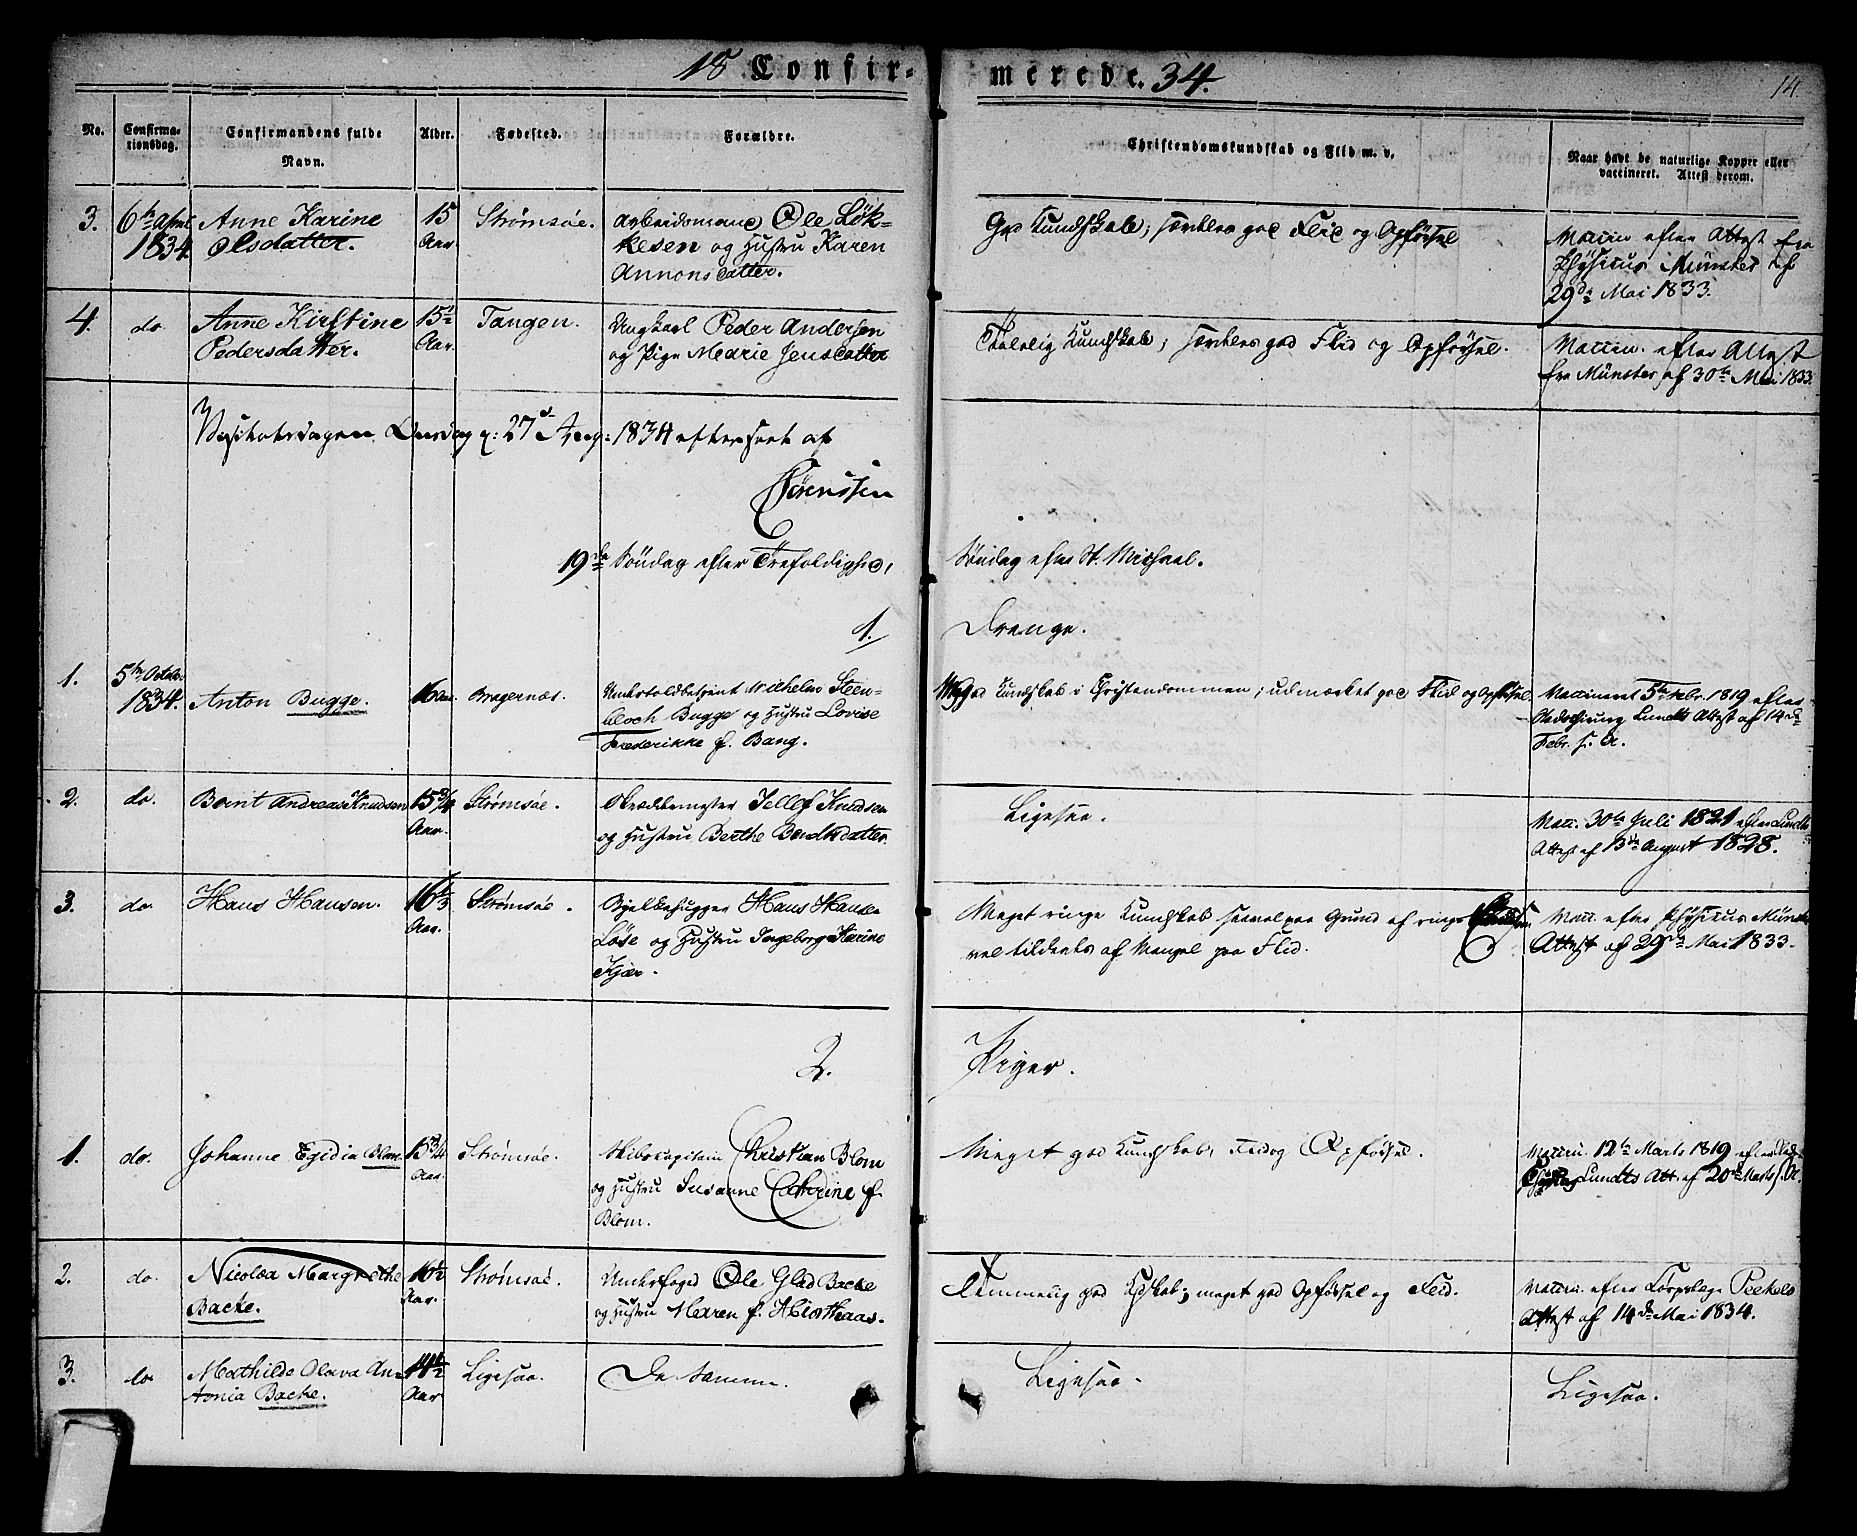 18 Confir-
merede. 34.
14.
No.
Confirma-
tionsdag.
Confirmandens fulde
Navn.
Alder.
Fødested.
Forældre.
Christendomskundskab og Flid m. v.
Naar havt de naturlige Kopper eller
vaccineret. Attest derom.
3.
6te April
1834
Anne Karine
Olsdatter.
15
Aar
Strømsøe.
Arbeidsmand Ole Løk-
kesen og Hustru Karen
Annonsdatter.
God Kundskab; særdeles god Flid og Opførsel
Vaccin efter Attest fra
Physicus Münster af
29de Mai 1833.
4.
do.
Anne Kirstine
Pedersdatter.
15½
Aar.
Tangen.
Ungkarl Peder Andersen
og Pige Marie Jensdatter
Taalelig Kundskab; særdeles god Flid og Opførsel.
Vaccin. efter Attest
fra Münster af 30te Mai 1833.
Visitatsdagen Onsdag d: 27de Aug: 1834 efterseet af
Sørenssen
19de Søndag efter Trefoldighed,
Søndag efter St. Michael.
1.
Drenge.
1.
5te Octobr
1834.
Anton Bugge.
16 Aar.
Bragernæs.
Undertoldbetjent Wilhelm Steen-
bloch Bugge og Hustru Lovise
Frederikke f. Bang.
Mgod Kundskab i Christendommen; udmærket god Flid og Opførsel
Vaccineret 5te Febr. 1819 efter
Lundts Attest af 14de
Febr. s. A.
2.
do.
Bernt Andreas Knudsen
15¾
Aar.
Strømsøe.
Skrædermester Jellef Knudsen
og Hustru Berthe Berntsdatter.
Ligesaa.
Vacc. 30te Juli 1821 efter Lundts
Attest af 13de August 1828.
3.
do.
Hans Hansen.
16⅓
Aar.
Strømsøe.
Bjelkehugger Hans Hansen
Løse og Hustru Ingeborg Karine
Kjær.
Meget ringe Kundskab saavel paa Grund af ringe
vel tildeels af Mangel paa Flid.
Vacc. efter Physicus Münsters
Attest af 29de Mai 1833.
2.
Piger.
1.
do.
Johanne Egidia Blom.
15¾
Aar.
Strømsøe.
Skibscapitain Christian Blom
og Hustru Susanne Cathrine f.
Blom.
Meget god Kundskab, Flid og Opførsel.
Vaccin. 12te Marts 1819 efter
Lundts Att. af 20de Marts s. A.
2.
do.
Nicolæa Margrethe
Backe.
16½
Aar.
Strømsøe.
Underfoged Ole Glad Backe
og Hustru Maren f. Hiorthaas.
Temmelig god Kdskab; meget god Opførsel og Flid.
Vaccin. efter Corpslæge Peckels
Attest af 14de Mai 1834.
3.
do
Mathilde Olava An-
tonia Backe.
14½
Aar
Ligesaa.
De Samme.
Ligesaa.
Ligesaa.